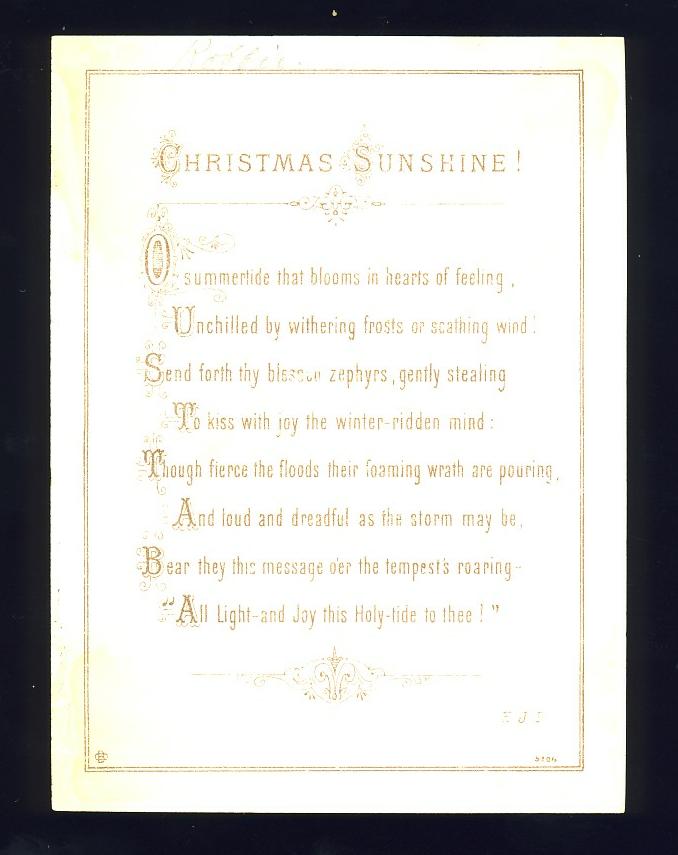 Robbie.
CHRISTMAS SUNSHINE!
O summertide that blooms in hearts of feeling,
Unchilled by withering frosts or scathing wind!
Send forth thy blessed zephyrs, gently stealing
To kiss with joy the winter-ridden mind:
Though fierce the floods their foaming wrath are pouring,
And loud and dreadful as the storm may be,
Bear they this message o'er the tempest's roaring-
"All Light-and Joy this Holy-tide to thee!"